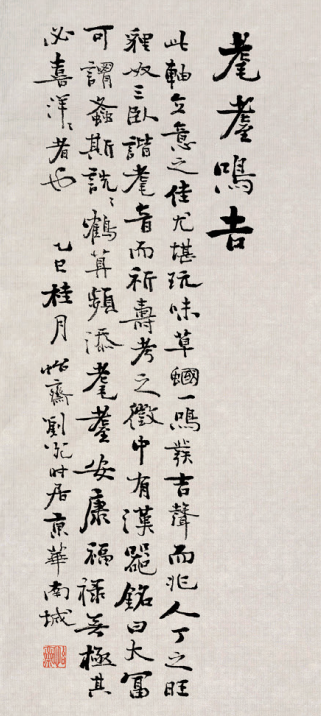 耄耋鳴吉
此軸立意之佳尤堪玩味草蟈一鳴發吉聲而兆人丁之旺
貍奴三臥諧耄音而祈壽考之徵中有漢器銘曰大富
可謂螽斯詵〻鶴算頻添耄耋安康福祿無極其
必喜洋〻者也 乙巳桂月 齋劉 時居京華南城